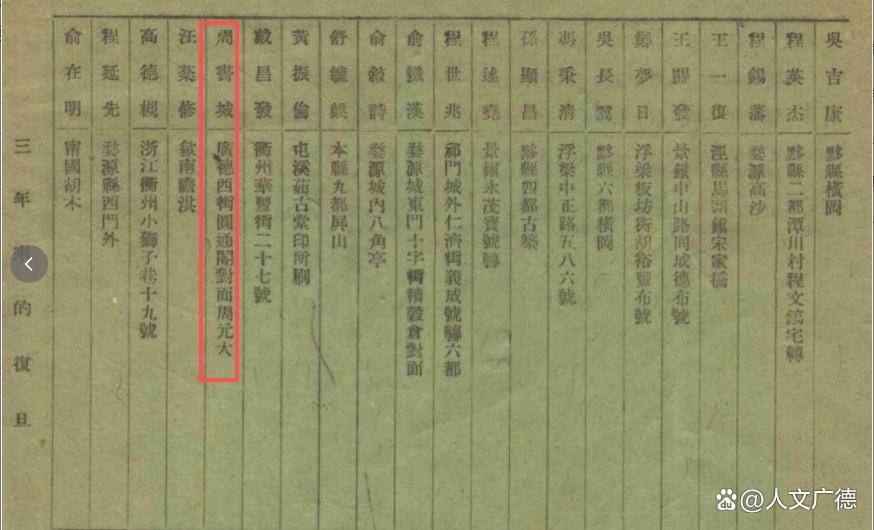 吳吉康 黟縣橫岡
程英杰 黟縣二都潭川村程文鎬宅轉
程錫藩 婺源高沙
王一復 涇縣馬頭鎮宋家橋
王開發 景鎮中山路同成德布號
鄭夢日 浮梁板坊街胡裕豐布號
吳長翼 黟縣六都橫岡
馮秉清 浮梁中正路五八六號
孫顯昌 黟縣四都古築
程述堯 景鎮永茂寶號轉
程世兆 祁門城外仁濟街義成號轉六都
俞鐵漢 婺源城東門十字街積穀倉對面
俞敍詩 婺源城內八角亭
舒毓 本縣九都屏山
黃振倫 屯溪茹古堂印所刷
戴昌發 衢州華豐街二十七號
周書城 廣德西街圓通閣對面周元大
汪蔡修 歙南瞻淇
高德槻 浙江衢州小獅子巷十九號
程延先 婺源縣西門外
俞在明 甯國胡木
三年來的復旦
百度 @人文广德